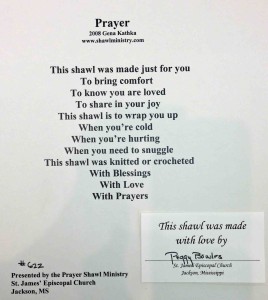 Prayer
2008 Gena Kathka
www.shawlministry.com
This shawl was made just for you
To bring comfort
To know you are loved
To share in your joy
This shawl is to wrap you up
When you're cold
When you're hurting
When you need to snuggle
This shawl was knitted or crocheted
With Blessings
With Love
With Prayers
#622
Presented by the Prayer Shawl Ministry
St. James' Episcopal Church
Jackson, MS
This shawl was made
with love by
Peggy Bowles
St. James Episcopal Church
Jackson, Mississippi